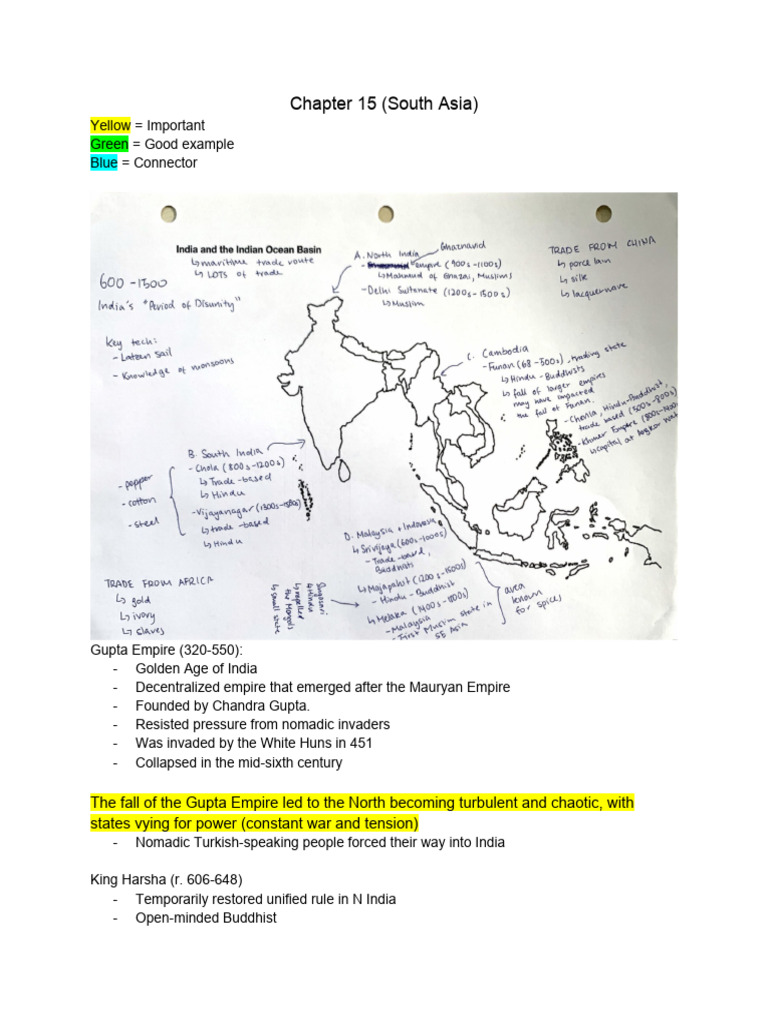 Chapter 15 (South Asia)
Yellow = Important
Green = Good example
Blue = Connector
India and the Indian Ocean Basin
↳ maritime trade route
↳ LOTS of trade
600 - 1500
India's "Period of Disunity"
Key tech:
- Lateen sail
- Knowledge of monsoons
A. North India
Ghaznavid
- empire (900s-1100s)
↳ Mahmud of Ghazni, Muslims
- Delhi Sultanate (1200s-1500s)
↳ Muslim
TRADE FROM CHINA
↳ porcelain
↳ silk
↳ lacquerware
C. Cambodia
- Funan (68-500s), trading state
↳ Hindu-Buddhists
↳ fall of larger empires
may have impacted
the fall of Funan.
- Chenla, Hindu-Buddhist,
trade based (500s-800s)
- Khmer Empire
↳ capital at Angkor Wat
B. South India
- Chola (800s-1200s)
↳ Trade-based
↳ Hindu
- Vijayanagar (1300s-1500s)
↳ trade-based
↳ Hindu
- pepper
- cotton
- steel
D. Malaysia + Indonesia
↳ Srivijaya (600s-1000s)
- Trade-based,
Buddhist
↳ Majapahit (1200s-1500s)
- Hindu-Buddhist
↳ Melaka (1400s-1800s)
- Malaysia
- First Muslim state in
SE Asia
area
known
for spices
Singosari
↳ Hindu
↳ repelled
the Mongols
↳ small state
TRADE FROM AFRICA
↳ gold
↳ ivory
↳ slaves
Gupta Empire (320-550):
- Golden Age of India
- Decentralized empire that emerged after the Mauryan Empire
- Founded by Chandra Gupta.
- Resisted pressure from nomadic invaders
- Was invaded by the White Huns in 451
- Collapsed in the mid-sixth century
The fall of the Gupta Empire led to the North becoming turbulent and chaotic, with
states vying for power (constant war and tension)
- Nomadic Turkish-speaking people forced their way into India
King Harsha (r. 606-648)
- Temporarily restored unified rule in N India
- Open-minded Buddhist